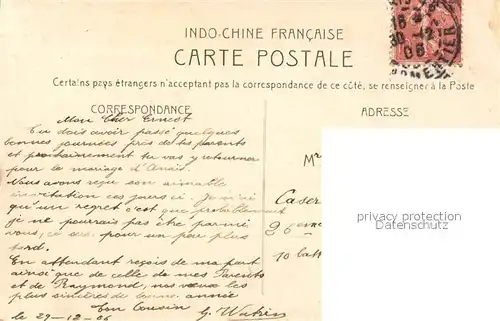 INDO-CHINE FRANÇAISE
CARTE POSTALE
Certains pays étrangers n'acceptant pas la correspondance de ce côté, se renseigner à la Poste
CORRESPONDANCE
ADRESSE
Mon Cher Ernest
Tu dois avoir passé quelques
bonnes journées près de tes parents
et prochainement tu vas y retourner
pour le mariage d'Anaïs.
Nous avons reçu son aimable
invitation ces jours ci. Je n'ai
qu'un regret c'est que probablement
je ne pourrais pas être parmi
vous, ce sera pour un peu plus
tard.
En attendant reçois de ma part
ainsi que de celle de mes Parents
et de Raymond, nos vœux les
plus sincères de bonne année
Ton Cousin
le 29-12-06
G.
Mr
Caser
26eme
10 batt
privacy protection
Datenschutz
18
30 12
06